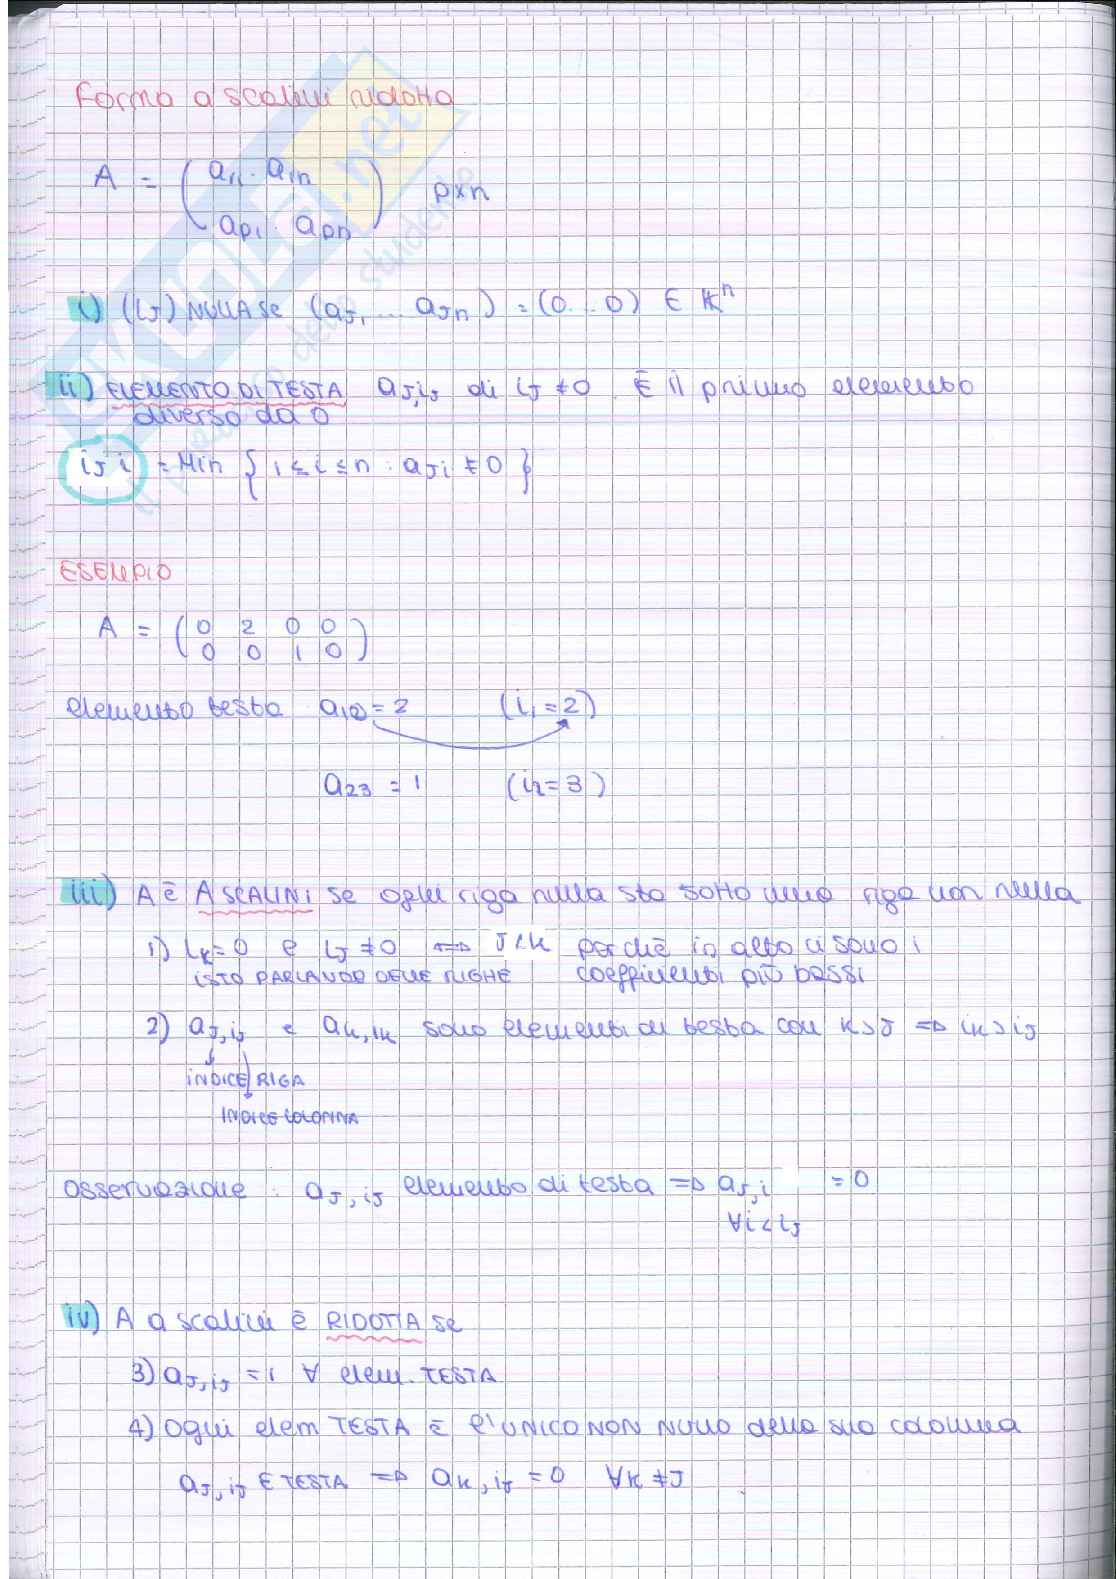 Forma a scalini ridotta
A = ( a11 . a1n
ap1 . apn ) p×n
i) (Lj) NULLA SE (aj1 ... ajn) = (0...0) ∈ Kⁿ
ii) ELEMENTO DI TESTA aj,ij di Lj ≠ 0 È il primo elemento
diverso da 0
ij i = Min { 1 ≤ i ≤ n : aji ≠ 0 }
ESEMPIO
A = ( 0 2 0 0
0 0 1 0 )
elemento testa a12 = 2 (i1 = 2)
a23 = 1 (i2 = 3)
iii) A è A SCALINI se ogni riga nulla sta sotto una riga non nulla
1) LK = 0 e LJ ≠ 0 ⟺ J < K perchè in alto ci sono i
(STO PARLANDO DELLE RIGHE coefficienti più bassi
2) aJ,ij e aK,iK sono elementi di testa con K > J ⇒ iK > iJ
INDICE RIGA
INDICE COLONNA
osservazione : aJ,ij elemento di testa ⇒ aJ,i = 0
∀i < iJ
iv) A a scalini è RIDOTTA se
3) aJ,ij = 1 ∀ elem. TESTA
4) Ogni elem TESTA È l'UNICO NON NULLO della sua colonna
aJ,ij È TESTA ⇒ aK,ij = 0 ∀K ≠ J